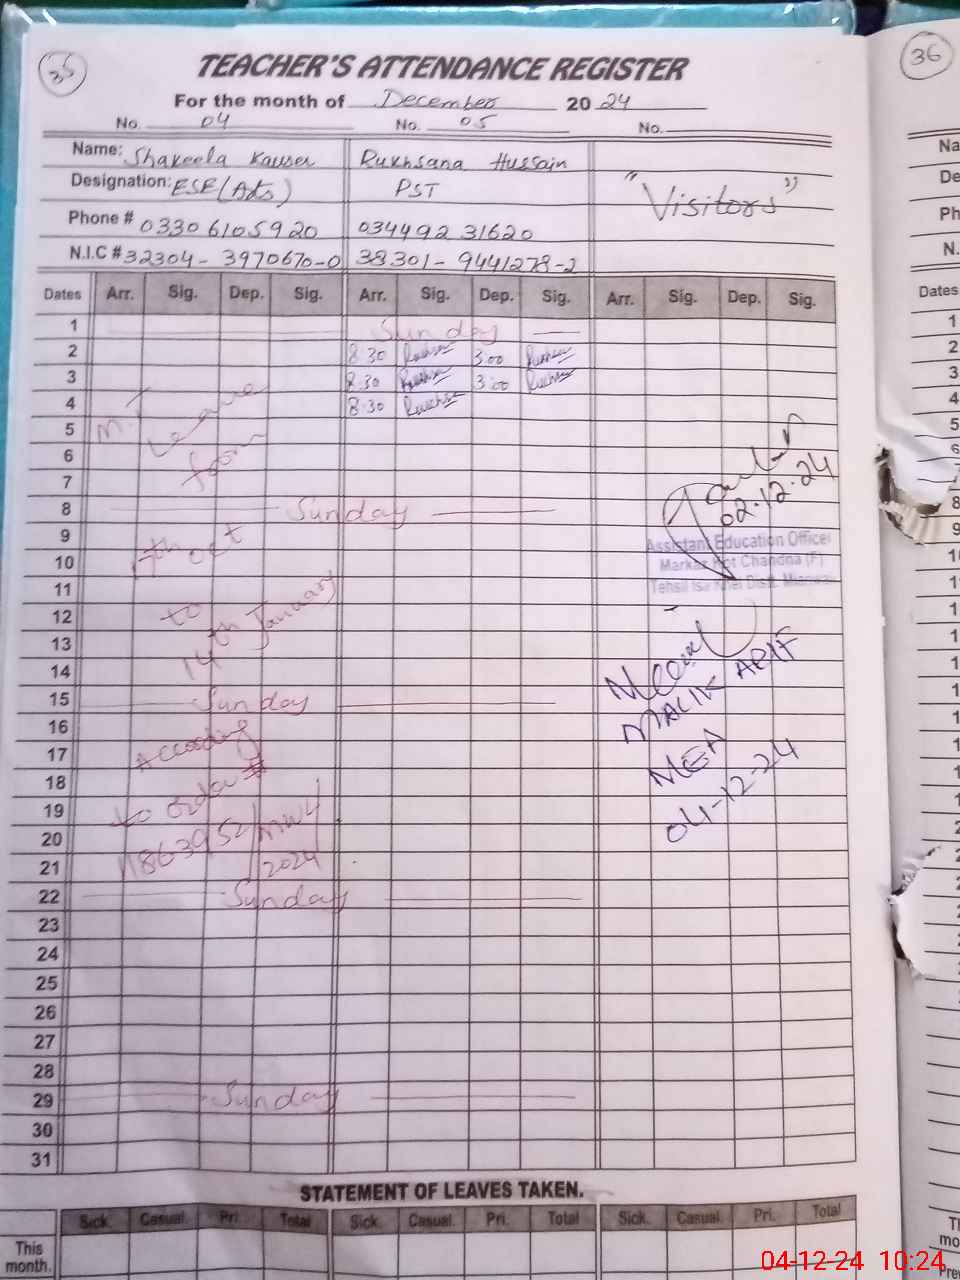 35
36
TEACHER'S ATTENDANCE REGISTER
For the month of December 2024
No. 04 No. 05 No.
Name: Shakeela Kauser Rukhsana Hussain
Designation: ESE(Arts) PST "Visitors"
Phone # 0330 6105920 034492 31620
N.I.C # 32304-3970670-0 38301-9441278-2
Dates Arr. Sig. Dep. Sig. Arr. Sig. Dep. Sig. Arr. Sig. Dep. Sig.
1 Sunday
2 8:30 3:00
3 8:30 3:00
4 8:30
5 M. Leave
6 from
7
8 Sunday
9 17th oct
10
11
12 to
13 14th January
14
15 Sunday
16 According
17
18 to order #
19
20
21 2024
22 Sunday
23
24
25
26
27
28
29 Sunday
30
31
02.12.24
Assistant Education Officer
Markaz Kot Chandna (F)
Tehsil Isa Khel Distt. Mianwali
MALIK ARIF
MEA
04-12-24
STATEMENT OF LEAVES TAKEN.
Sick. Casual. Pri. Total Sick. Casual. Pri. Total Sick. Casual. Pri. Total
This month.
04-12-24 10:24
Na
De
Ph
N.
Dates
1
2
3
4
5
6
7
8
9